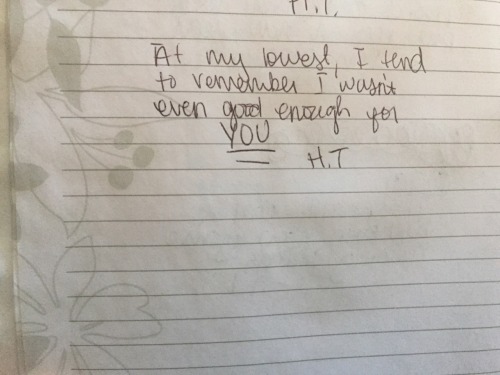 H.T.
At my lowest, I tend
to remember I wasn't
even good enough for
YOU
H.T